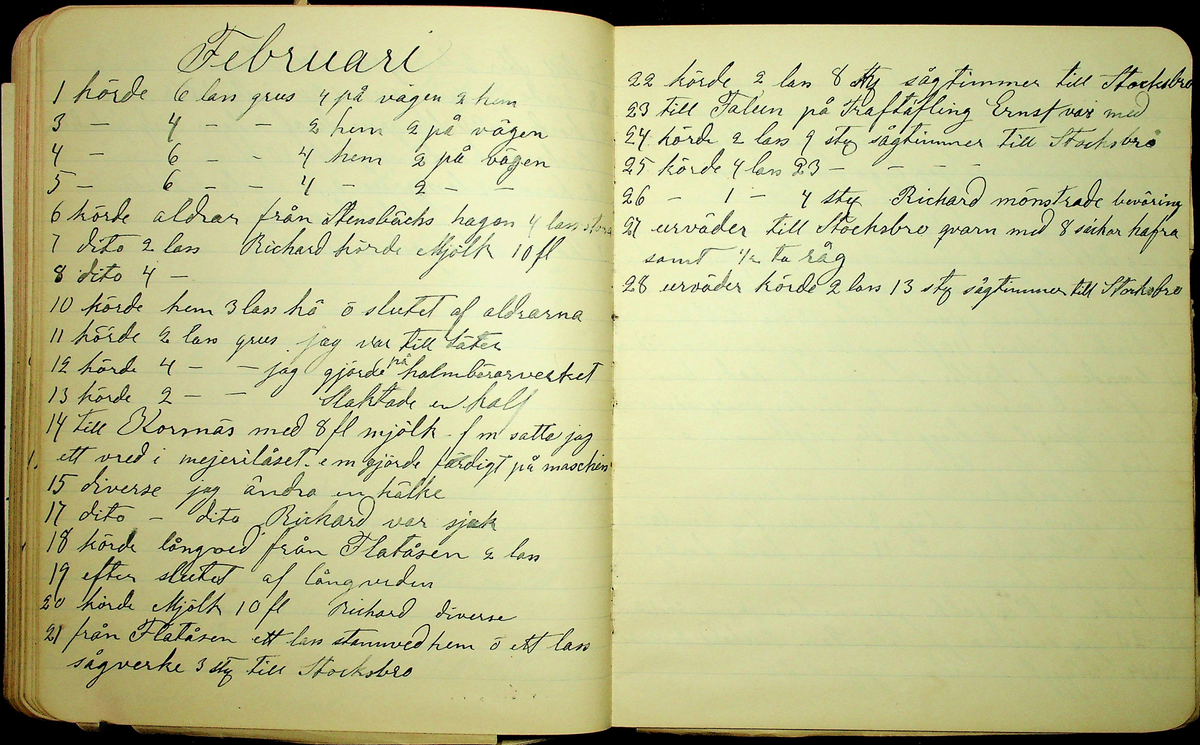 Februari
1 körde 6 lass grus 4 på vägen 2 hem
3 — 4 — — 2 hem 2 på vägen
4 — 6 — — 4 hem 2 på vägen
5 — 6 — — 4 — 2 — —
6 körde aldrar från Stensbäcks hagen 4 lass stora
7 dito 2 lass Richard körde Mjölk 10 fl
8 dito 4 —
10 körde hem 3 lass hö ö slutet af aldrarna
11 körde 2 lass grus jag var till
12 körde 4 — — jag gjorde på
13 körde 2 — — Slaktade en kalf
14 till Kormäs med 8 fl mjölk f m satte jag
ett vred i mejerilåset. e m gjorde färdigt på maschin
15 diverse jag ändra en kälke
17 dito — dito Richard var sjuk
18 körde långved från Flatåsen 2 lass
19 efter slutet af långveden
20 körde Mjölk 10 fl Richard diverse
21 från Flatåsen ett lass stamved hem ö ett lass
sågverke 3 sty till Stocksbro
22 körde 2 lass 8 sty sågtimmer till Stocksbro
23 till Falun på Traftäfling Ernst var med
24 körde 2 lass 9 sty sågtimmer till Stocksbro
25 körde 4 lass 23 — — — —
26 — 1 — 4 sty Richard mönstrade beväring
27 urväder till Stocksbro qvarn med 8 säckar hafra
samt 1/2 ta råg
28 urväder körde 2 lass 13 sty sågtimmer till Stocksbro